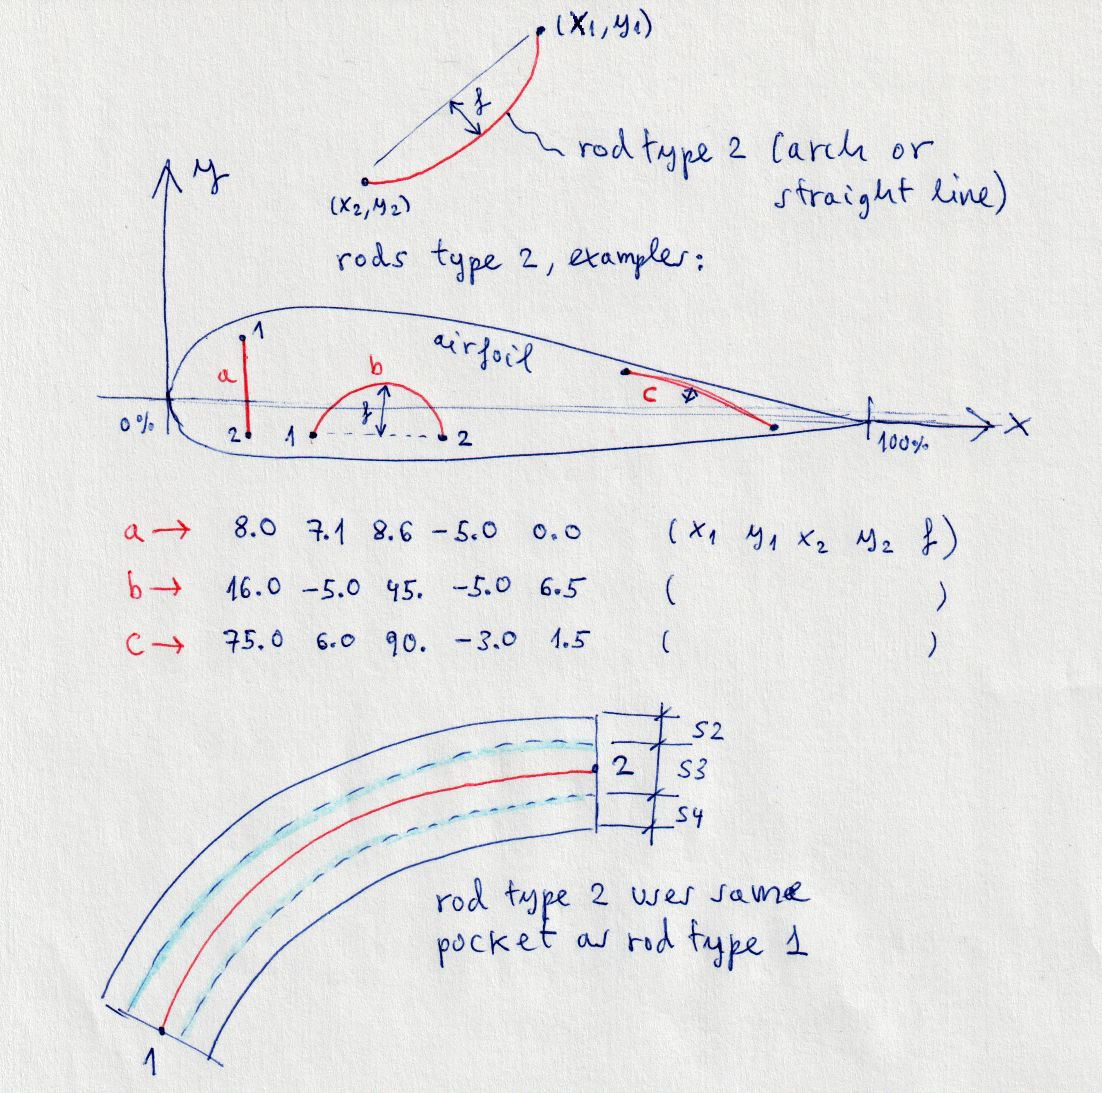 (x1, y1)
f
rod type 2 (arch or
straight line)
(x2, y2)
y
rods type 2, examples:
1
airfoil
a
b
c
f
0%
2
1
2
100%
x
a → 8.0 7.1 8.6 -5.0 0.0 (x1 y1 x2 y2 f)
b → 16.0 -5.0 45. -5.0 6.5 ( )
c → 75.0 6.0 90. -3.0 1.5 ( )
S2
2 S3
S4
rod type 2 uses same
pocket as rod type 1
1